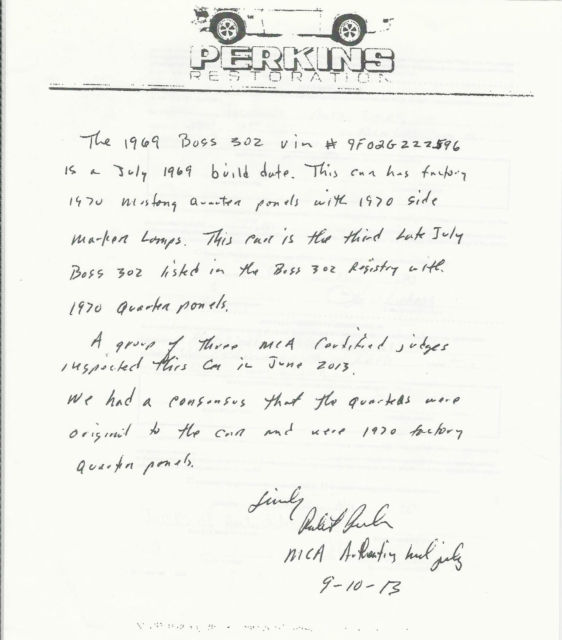 PERKINS
RESTORATION
The 1969 Boss 302 vin # 9F02G222596
is a July 1969 build date. This car has factory
1970 Mustang Quarter panels with 1970 side
marker lamps. This car is the third late July
Boss 302 listed in the Boss 302 Registry with
1970 Quarter panels.
A group of three MCA Certified judges
inspected this Car in June 2013.
We had a consensus that the quarters were
original to the car and were 1970 factory
Quarter panels.
MCA
9-10-13